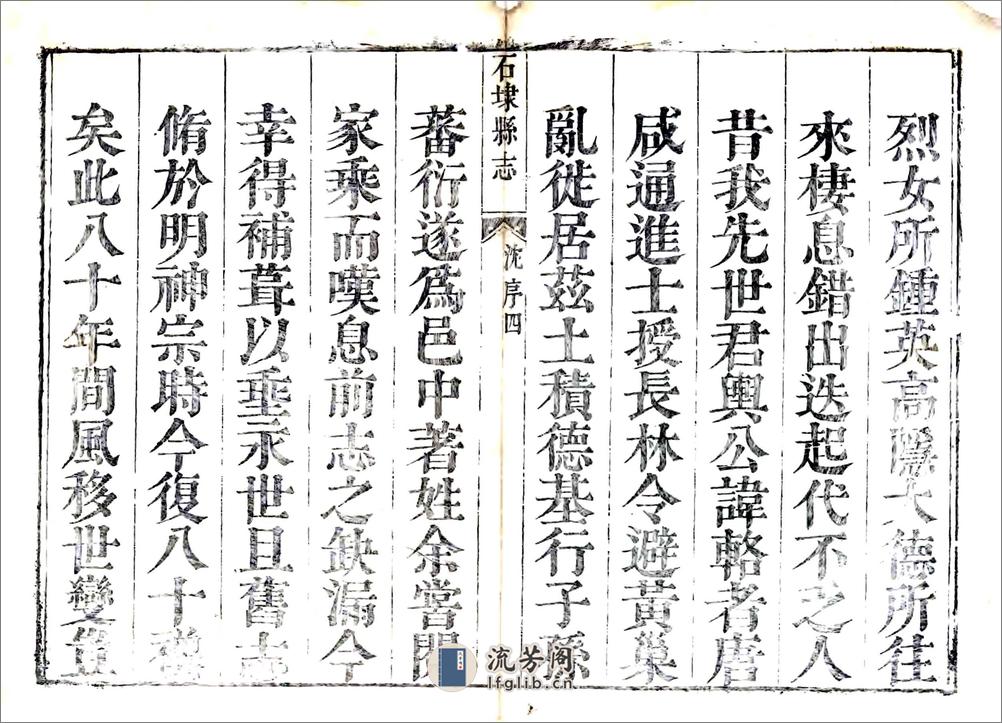 烈女所鍾英高隱大德所往
來棲息錯出迭起代不乏人
昔我先世君輿公諱輅者唐
咸通進士授長林令避黃巢
亂徙居茲土積德基行子孫
石埭縣志 沈序 四
蕃衍遂爲邑中著姓余嘗閱
家乘而嘆息前志之缺漏今
幸得補葺以垂永世且舊志
脩於明神宗時今復八十
矣此八十年間風移世變豈
流芳阁
lfglib.cn